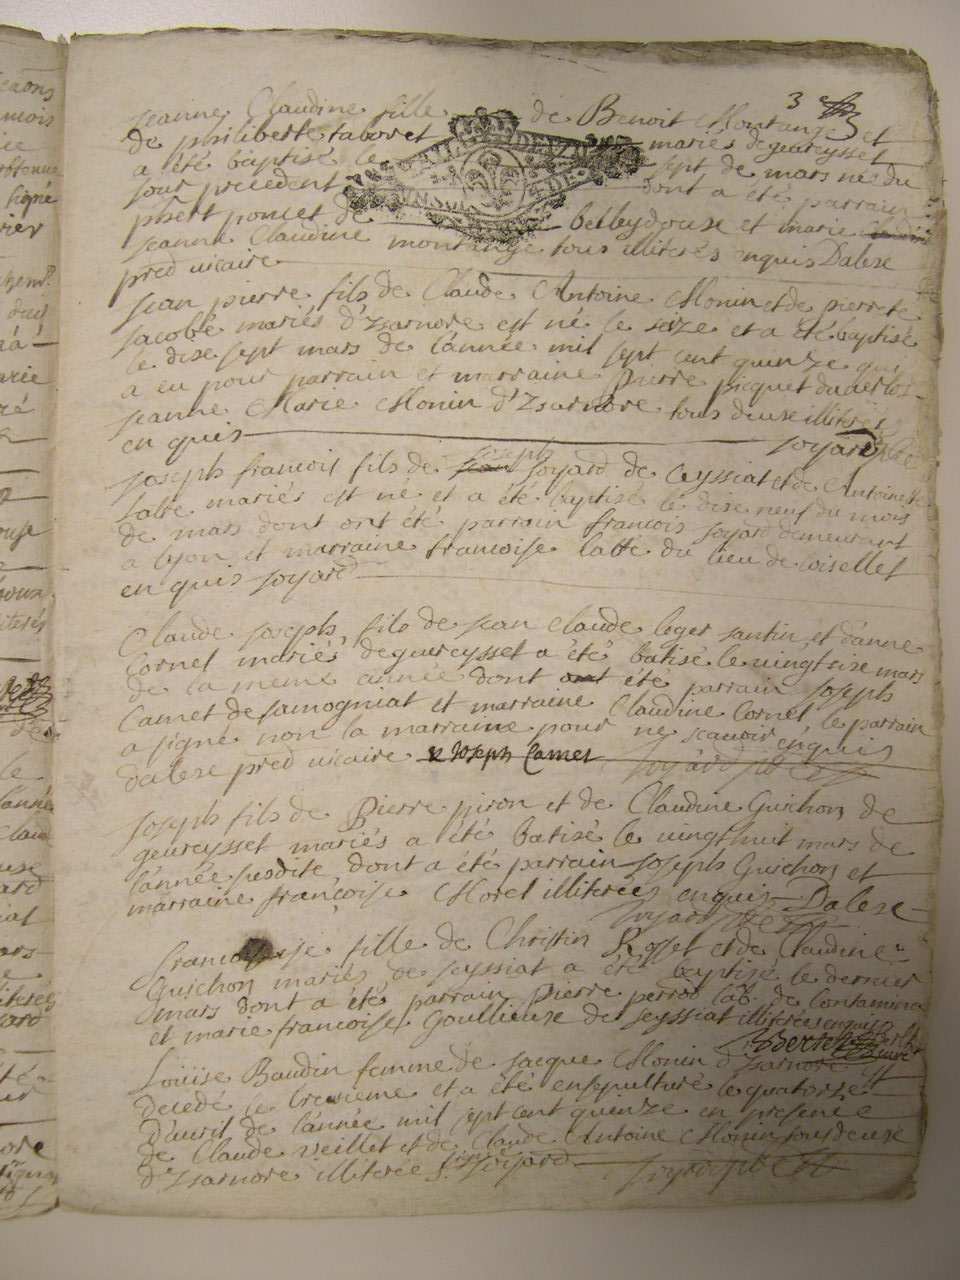 3
jeanne Claudine fille de Benoit Montange et
de philiberte taboret mariés de gevreysset
a été baptisé le sept de mars né du
jour precedent dont a été parrain
phert poncet de belleydouse et marie
jeanne Claudine montange tous illiterés enquis Dalexe
pred vicaire
jean pierre fils de Claude Antoine Monin et de pierrete
jacobé mariés d'Izarnore est né le seize et a été baptisé
le dixe sept mars de l'année mil sept cent quinze qui
a eu pour parrain et marraine pierre picquet du
jeanne Marie Monin d'Izarnore tous deuxe illiterés
en quis joyard
joseph francois fils de joseph joyard de ceyssiat et de Antoinette
labe mariés est né et a été baptisé le dixe neuf du mois
de mars dont ont été parrain francois joyard demeurant
a lyon et marraine francoise labbé du lieu de coisellet
en quis joyard
Claude joseph fils de jean Claude leger santin et d'anne
Cornel mariés de gevreysset a été batisé le vingt sixe mars
de la meme année dont a été parrain joseph
Camet de samogniat et marraine Claudine Cornel le parrain
a signé non la marraine pour ne scavoir enquis
dalexe pred vicaire joseph Camet
joseph fils de Pierre piron et de Claudine Guichon de
gevreysset mariés a été batisé le vingt huit mars de
l'année susdite dont a été parrain joseph Guichon et
marraine françoise Morel illiterés enquis Dalexe
francoise fille de Christin Rosset et de Claudine
Guichon mariés de seyssiat a été baptisé le dernier
mars dont a été parrain pierre perrod lab. de Contamina
et marie francoise Goullieuse de seyssiat illiterés enquis
Louise Baudin femme de jacque Monin d'Izarnore
decedé le tresieme et a été ensepulturé le quatorse
d'avril de l'année mil sept cent quinze en presence
de Claude veillet et de Claude Antoine Monin tous deuxe
d'Izarnore illiterés joyard